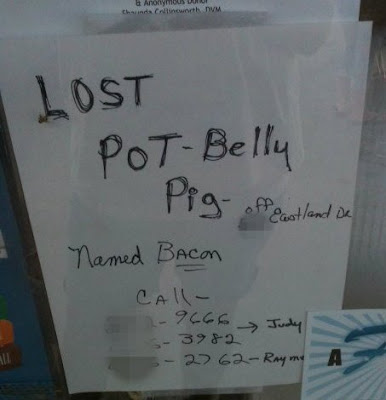 & Anonymous Donor
Shaunda Collinsworth, DVM
LOST
POT-Belly
Pig-
off Eastland De
Named BACON
CALL-
- 9666 → Judy
- 3982
- 2762 - Raym
A
ALL